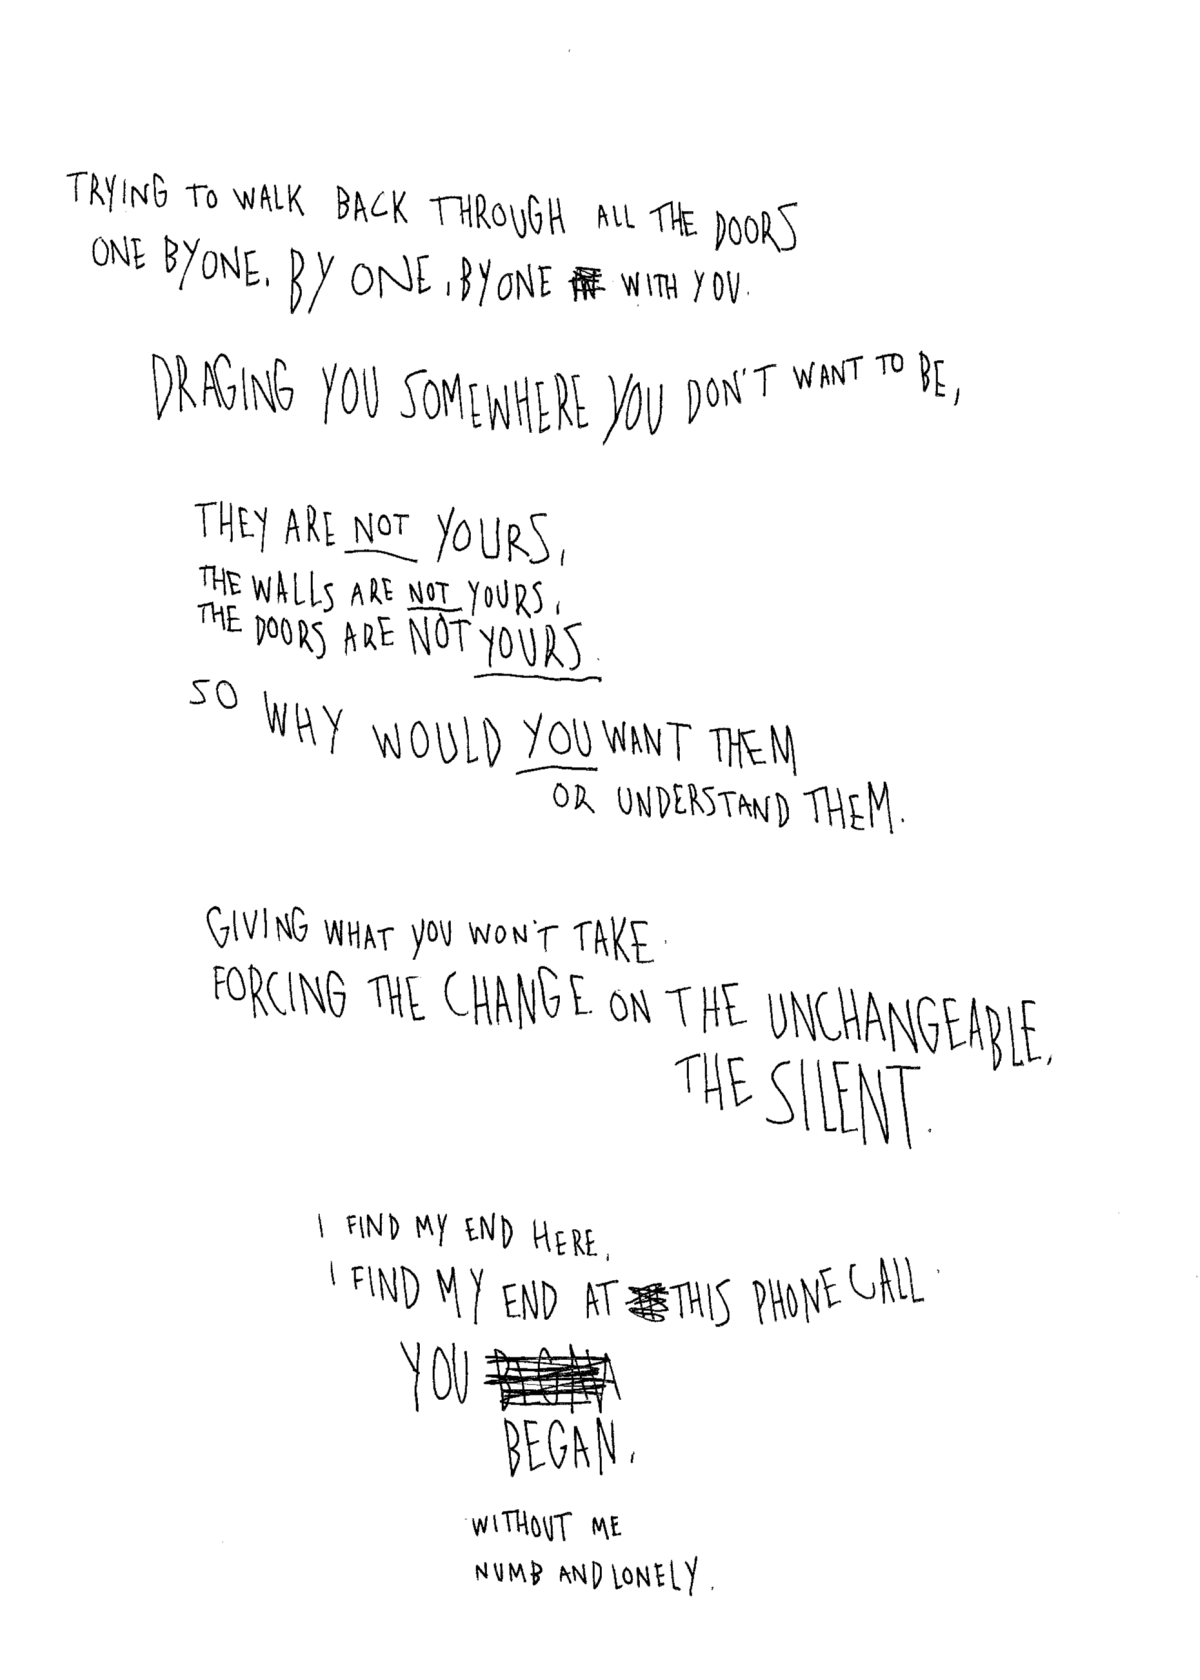 TRYING TO WALK BACK THROUGH ALL THE DOORS
ONE BY ONE. BY ONE, BY ONE WITH YOU.
DRAGING YOU SOMEWHERE YOU DON'T WANT TO BE,
THEY ARE NOT YOURS,
THE WALLS ARE NOT YOURS,
THE DOORS ARE NOT YOURS.
SO WHY WOULD YOU WANT THEM
OR UNDERSTAND THEM.
GIVING WHAT YOU WON'T TAKE.
FORCING THE CHANGE. ON THE UNCHANGEABLE,
THE SILENT.
I FIND MY END HERE,
I FIND MY END AT THIS PHONE CALL.
YOU
BEGAN,
WITHOUT ME
NUMB AND LONELY.